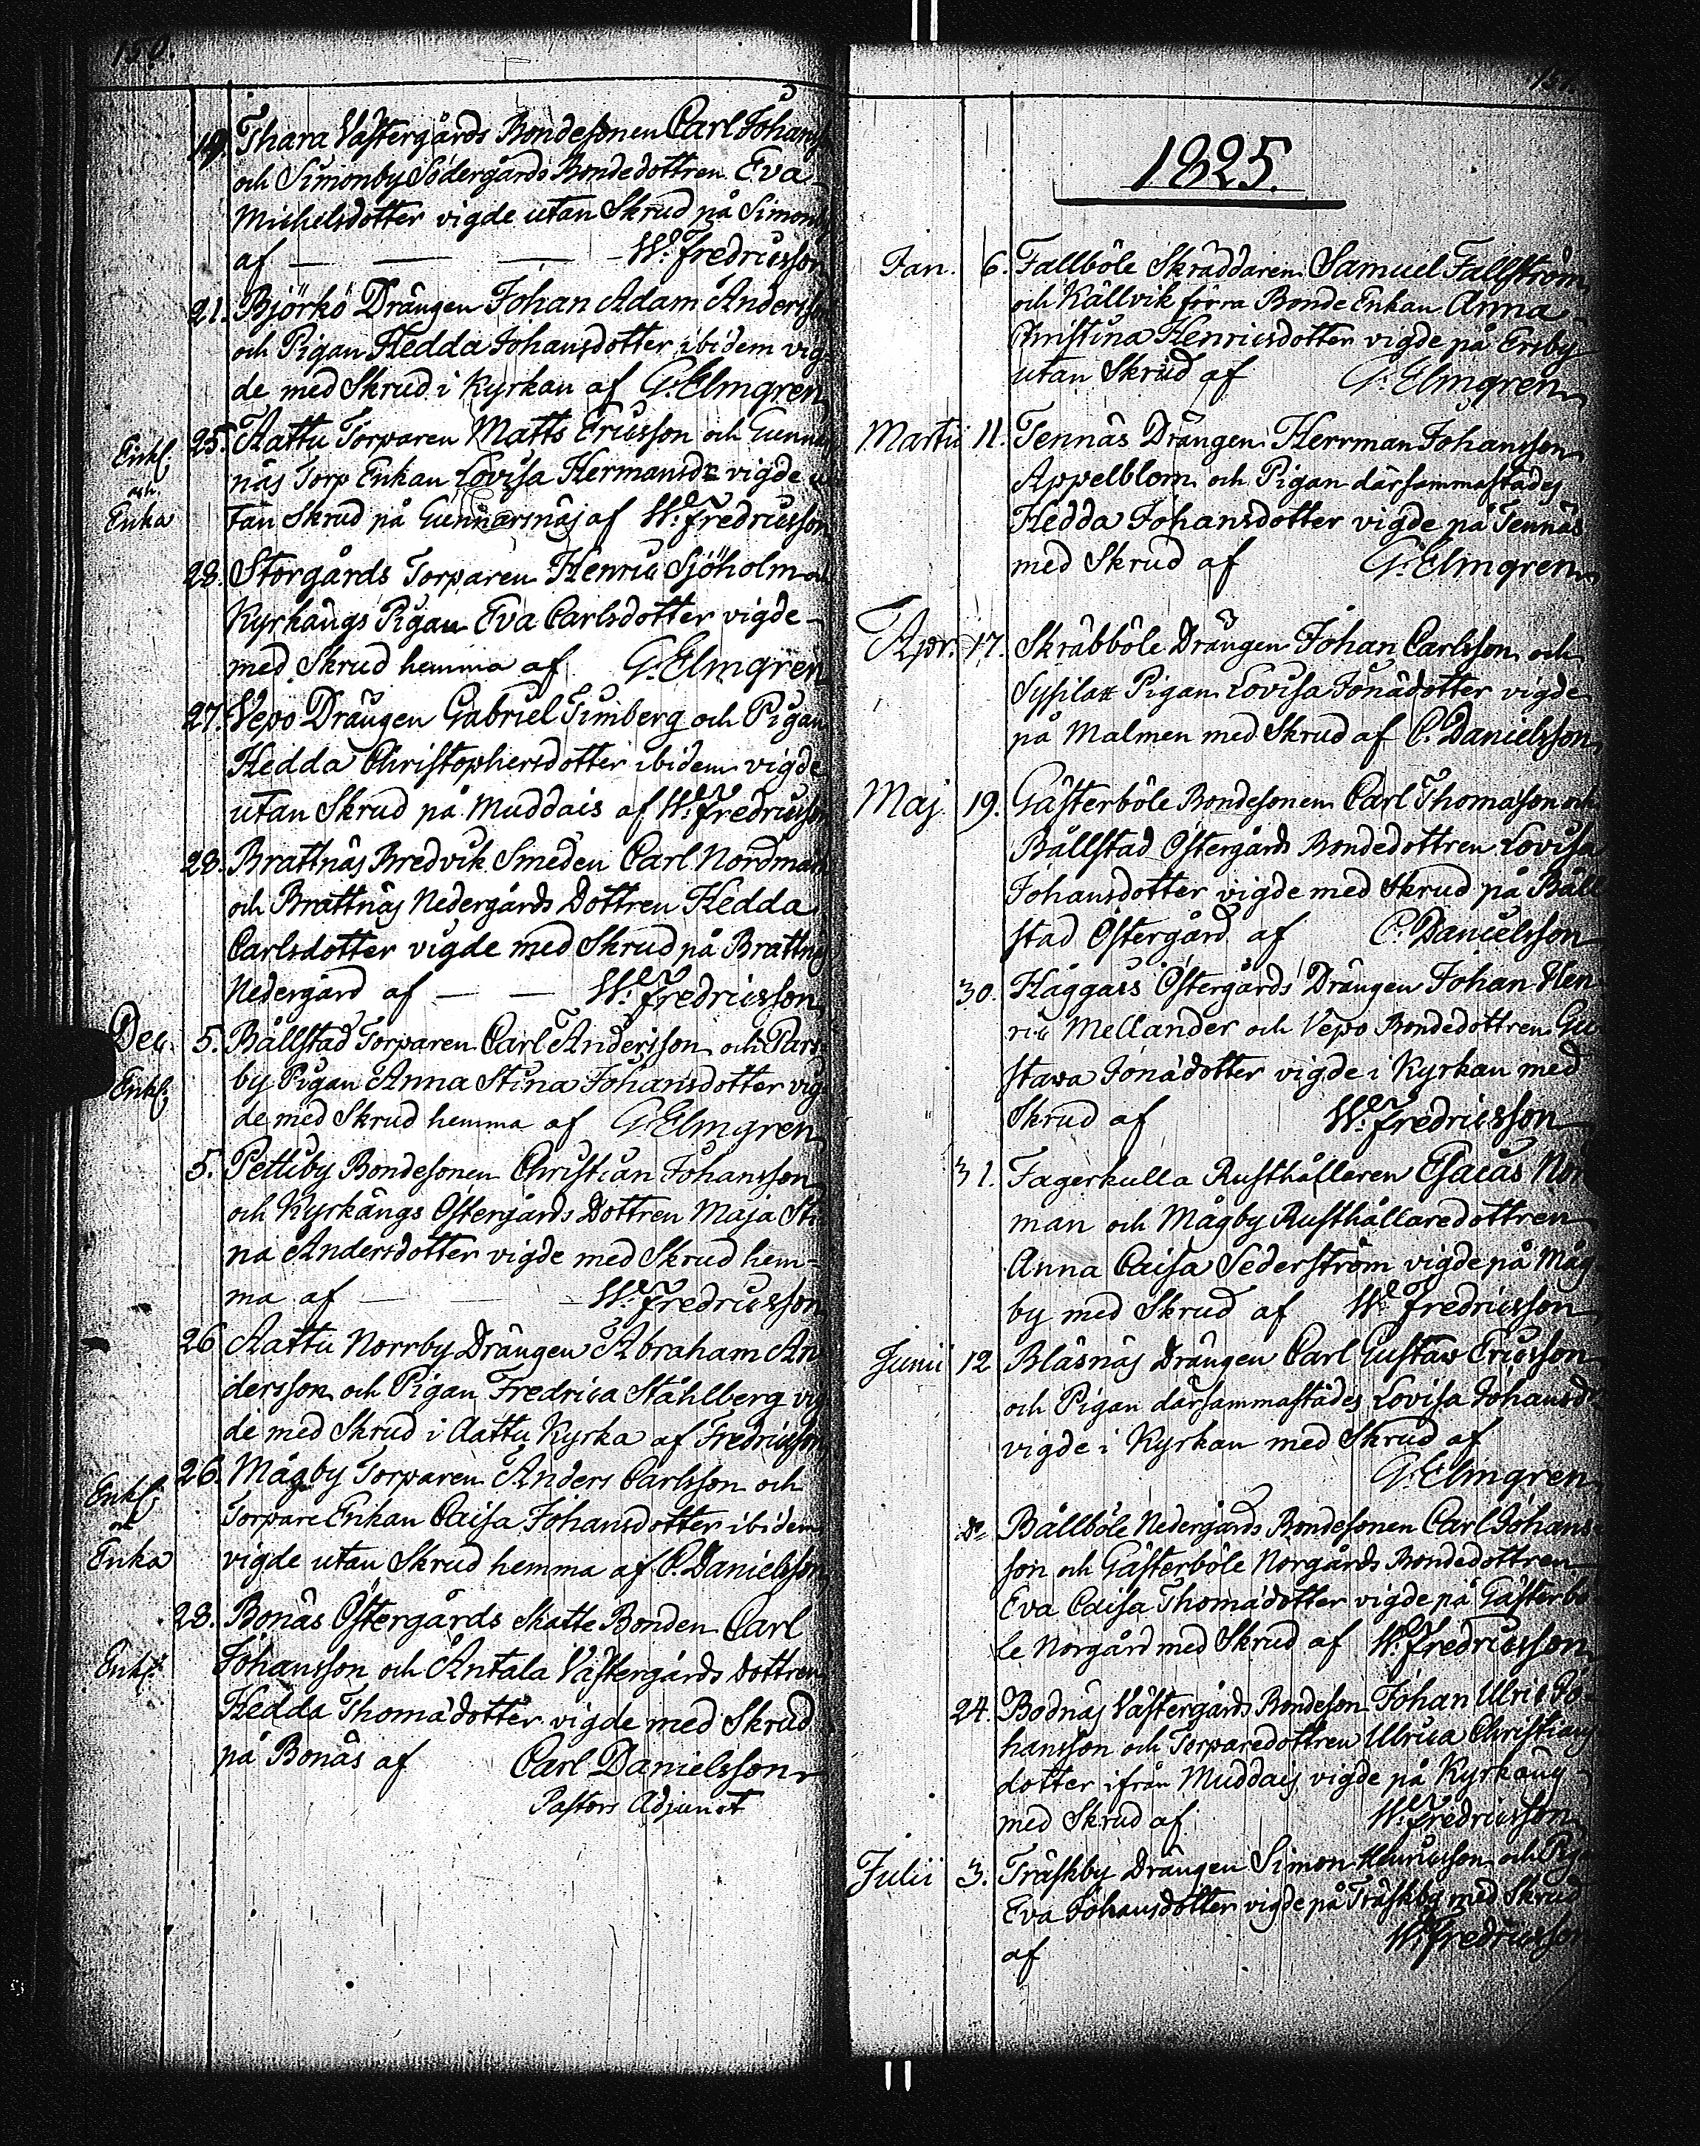 150.
19. Thara Västergårds Bondesonen Carl Johans
och Simonby Södergårds Bondedottren Eva
Michelsdotter vigde utan Skrud på Simon
af — — — W: Fredricsson
21. Björkö Drängen Johan Adam Anders
och Pigan Hedda Johansdotter ibidem vig
de med Skrud i Kyrkan af G. Elmgren
Enkl. och Enka
25. Aattu Torparen Matts Ericsson och Gunnar
näs Torp Enkan Lovisa Hermansdr vigde u
tan Skrud på Gunnarsnäs af W: Fredricsson
28. Storgårds Torparen Henric Sjöholm och
Kyrkängs Pigan Eva Carlsdotter vigde
med Skrud hemma af G. Elmgren
27. Vepo Drängen Gabriel Timberg och Pigan
Hedda Christophersdotter ibidem vigde
utan Skrud på Muddais af W: Fredricsson
28. Brattnäs Bredvik Smeden Carl Nordman
och Brattnäs Nedergårds Dottren Hedda
Carlsdotter vigde med Skrud på Brattnäs
Nedergård af — — W: Fredricsson
Dec. 5. Bållstad Torparen Carl Andersson och Pars
Enkl. by Pigan Anna Stina Johansdotter vig
de med Skrud hemma af G. Elmgren
5. Pettby Bondesonen Christian Johansson
och Kyrkängs Östergårds Dottren Maja Sti
na Andersdotter vigde med Skrud hem-
ma af — — W: Fredricsson
26 Aattu Norrby Drängen Abraham An
dersson och Pigan Fredrica Ståhlberg vig
de med Skrud i Aattu Kyrka af Fredricsson
26. Mågby Torparen Anders Carlsson och
Enkl. och Enka
Torpare Enkan Caisa Johansdotter ibidem
vigde utan Skrud hemma af C. Danielsson
28. Bonäs Östergårds Skatte Bonden Carl
Enkl. Johansson och Antala Västergårds Dottren
Hedda Thomadotter vigde med Skrud
på Bonäs af Carl Danielsson
Pastors Adjunct
151.
1825.
Jan. 6. Fallböle Skräddaren Samuel Fallström
och Källvik förra Bonde Enkan Anna
Christina Henricsdotter vigde på Ersby
utan Skrud af G. Elmgren
Martii 11. Tennäs Drängen Herrman Johansson
Appelblom och Pigan därsammastädes
Hedda Johansdotter vigde på Tennäs
med Skrud af G. Elmgren
Apr. 17. Skräbböle Drängen Johan Carlsson och
Sysilax Pigan Lovisa Jonädotter vigde
på Malmen med Skrud af C. Danielsson
Maj 19. Gästerböle Bondesonen Carl Thomason och
Bållstad Östergårds Bondedottren Lovisa
Johansdotter vigde med Skrud på Båll
stad Östergård af C. Danielsson
30. Häggais Östergårds Drängen Johan Hen
ric Mellander och Vepo Bondedottren Gu
stava Jonädotter vigde i Kyrkan med
Skrud af W: Fredricsson
31. Fagerkulla Rusthållaren Esaias Nor
man och Mågby Rusthållaredottren
Anna Caisa Sederström vigde på Måg
by med Skrud af W: Fredricsson
Junii 12 Bläsnäs Drängen Carl Gustav Ericsson
och Pigan därsammastädes Lovisa Johansdr
vigde i Kyrkan med Skrud af
G. Elmgren
Do Bållböle Nedergårds Bondesonen Carl Johans
son och Gästerböle Norgårds Bondedottren
Eva Caisa Thomädotter vigde på Gästerbö
le Norgård med Skrud af W: Fredricsson
24. Bodnäs Västergårds Bondeson Johan Ulric Jo
hansson och Torparedottren Ulrica Christians
dotter ifrån Muddais vigde på Kyrkäng
med Skrud af W: Fredricsson
Julii 3. Träskby Drängen Simon Henricsson och Pigan
Eva Johansdotter vigde på Träskby med Skrud
af W: Fredricsson